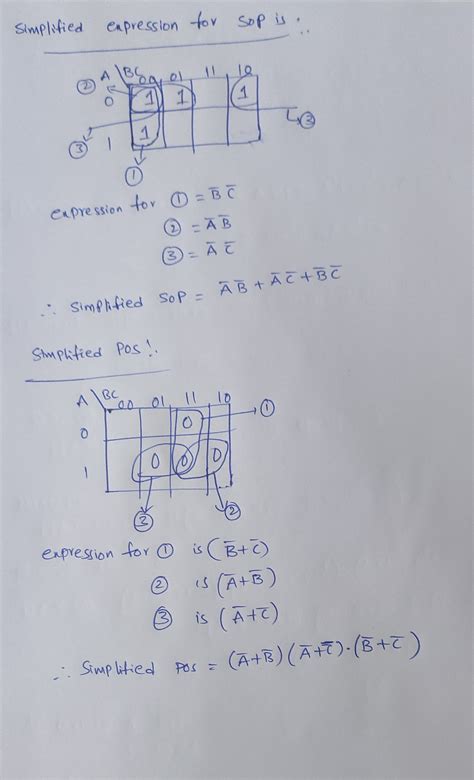 Simplified expression for SOP is :.
A \ BC 00 01 11 10
② 0 1 1 1
③ 1 1 ③
①
expression for ① = B̅ C̅
② = A̅ B̅
③ = A̅ C̅
∴ Simplified SOP = A̅ B̅ + A̅ C̅ + B̅ C̅
Simplified POS !.
A \ BC 00 01 11 10 ①
0 0
1 0 0 0
③ ②
expression for ① is (B̅+C̅)
② is (A̅+B̅)
③ is (A̅+C̅)
∴ Simplified POS = (A̅+B̅) (A̅+C̅)·(B̅+C̅)